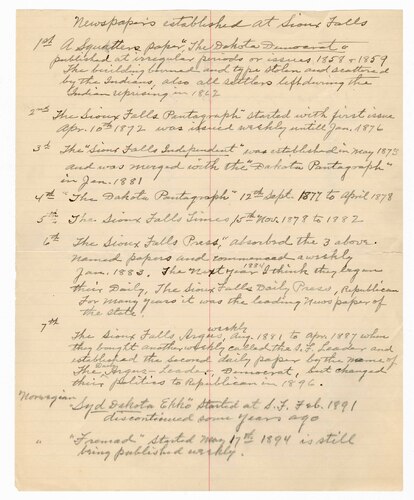 Newspapers established at Sioux Falls
1st A Squatters paper, "The Dakota Democrat"
published at irregular periods or issues 1858 & 1859
The building burned and type stolen and scattered
by the Indians, also all settlers left during the
Indian uprising in 1862
2nd The Sioux Falls Pantagraph" started with first issue
Apr. 10th 1872 was issued weekly until Jan. 1876
3d The "Sioux Falls Independent" was established in May 1873
and was merged with the "Dakota Pantagraph"
in Jan. 1881
4th "The Dakota Pantagraph" 12th Sept. 1877 to April 1878
5th The Sioux Falls Times 15th Nov. 1878 to 1882
6th The Sioux Falls Press, absorbed the 3 above
named papers and commenced a weekly
Jan. 1883. The next year I think they began
their Daily, The Sioux Falls Daily Press, Republican
For many years it was the leading News paper of
the State
7th weekly
The Sioux Falls Argus, Aug 1881 to Apr. 1887 when
they bought another weekly called the S.F. Leader and
established the second daily paper by the name of
The Daily Argus-Leader, Democrat, but changed
their politics to Republican in 1896.
Norwegian "Syd Dakota Ekko" started at S.F. Feb. 1891
discontinued some years ago
" "Fremad" started May 17th 1894 is still
being published weekly.